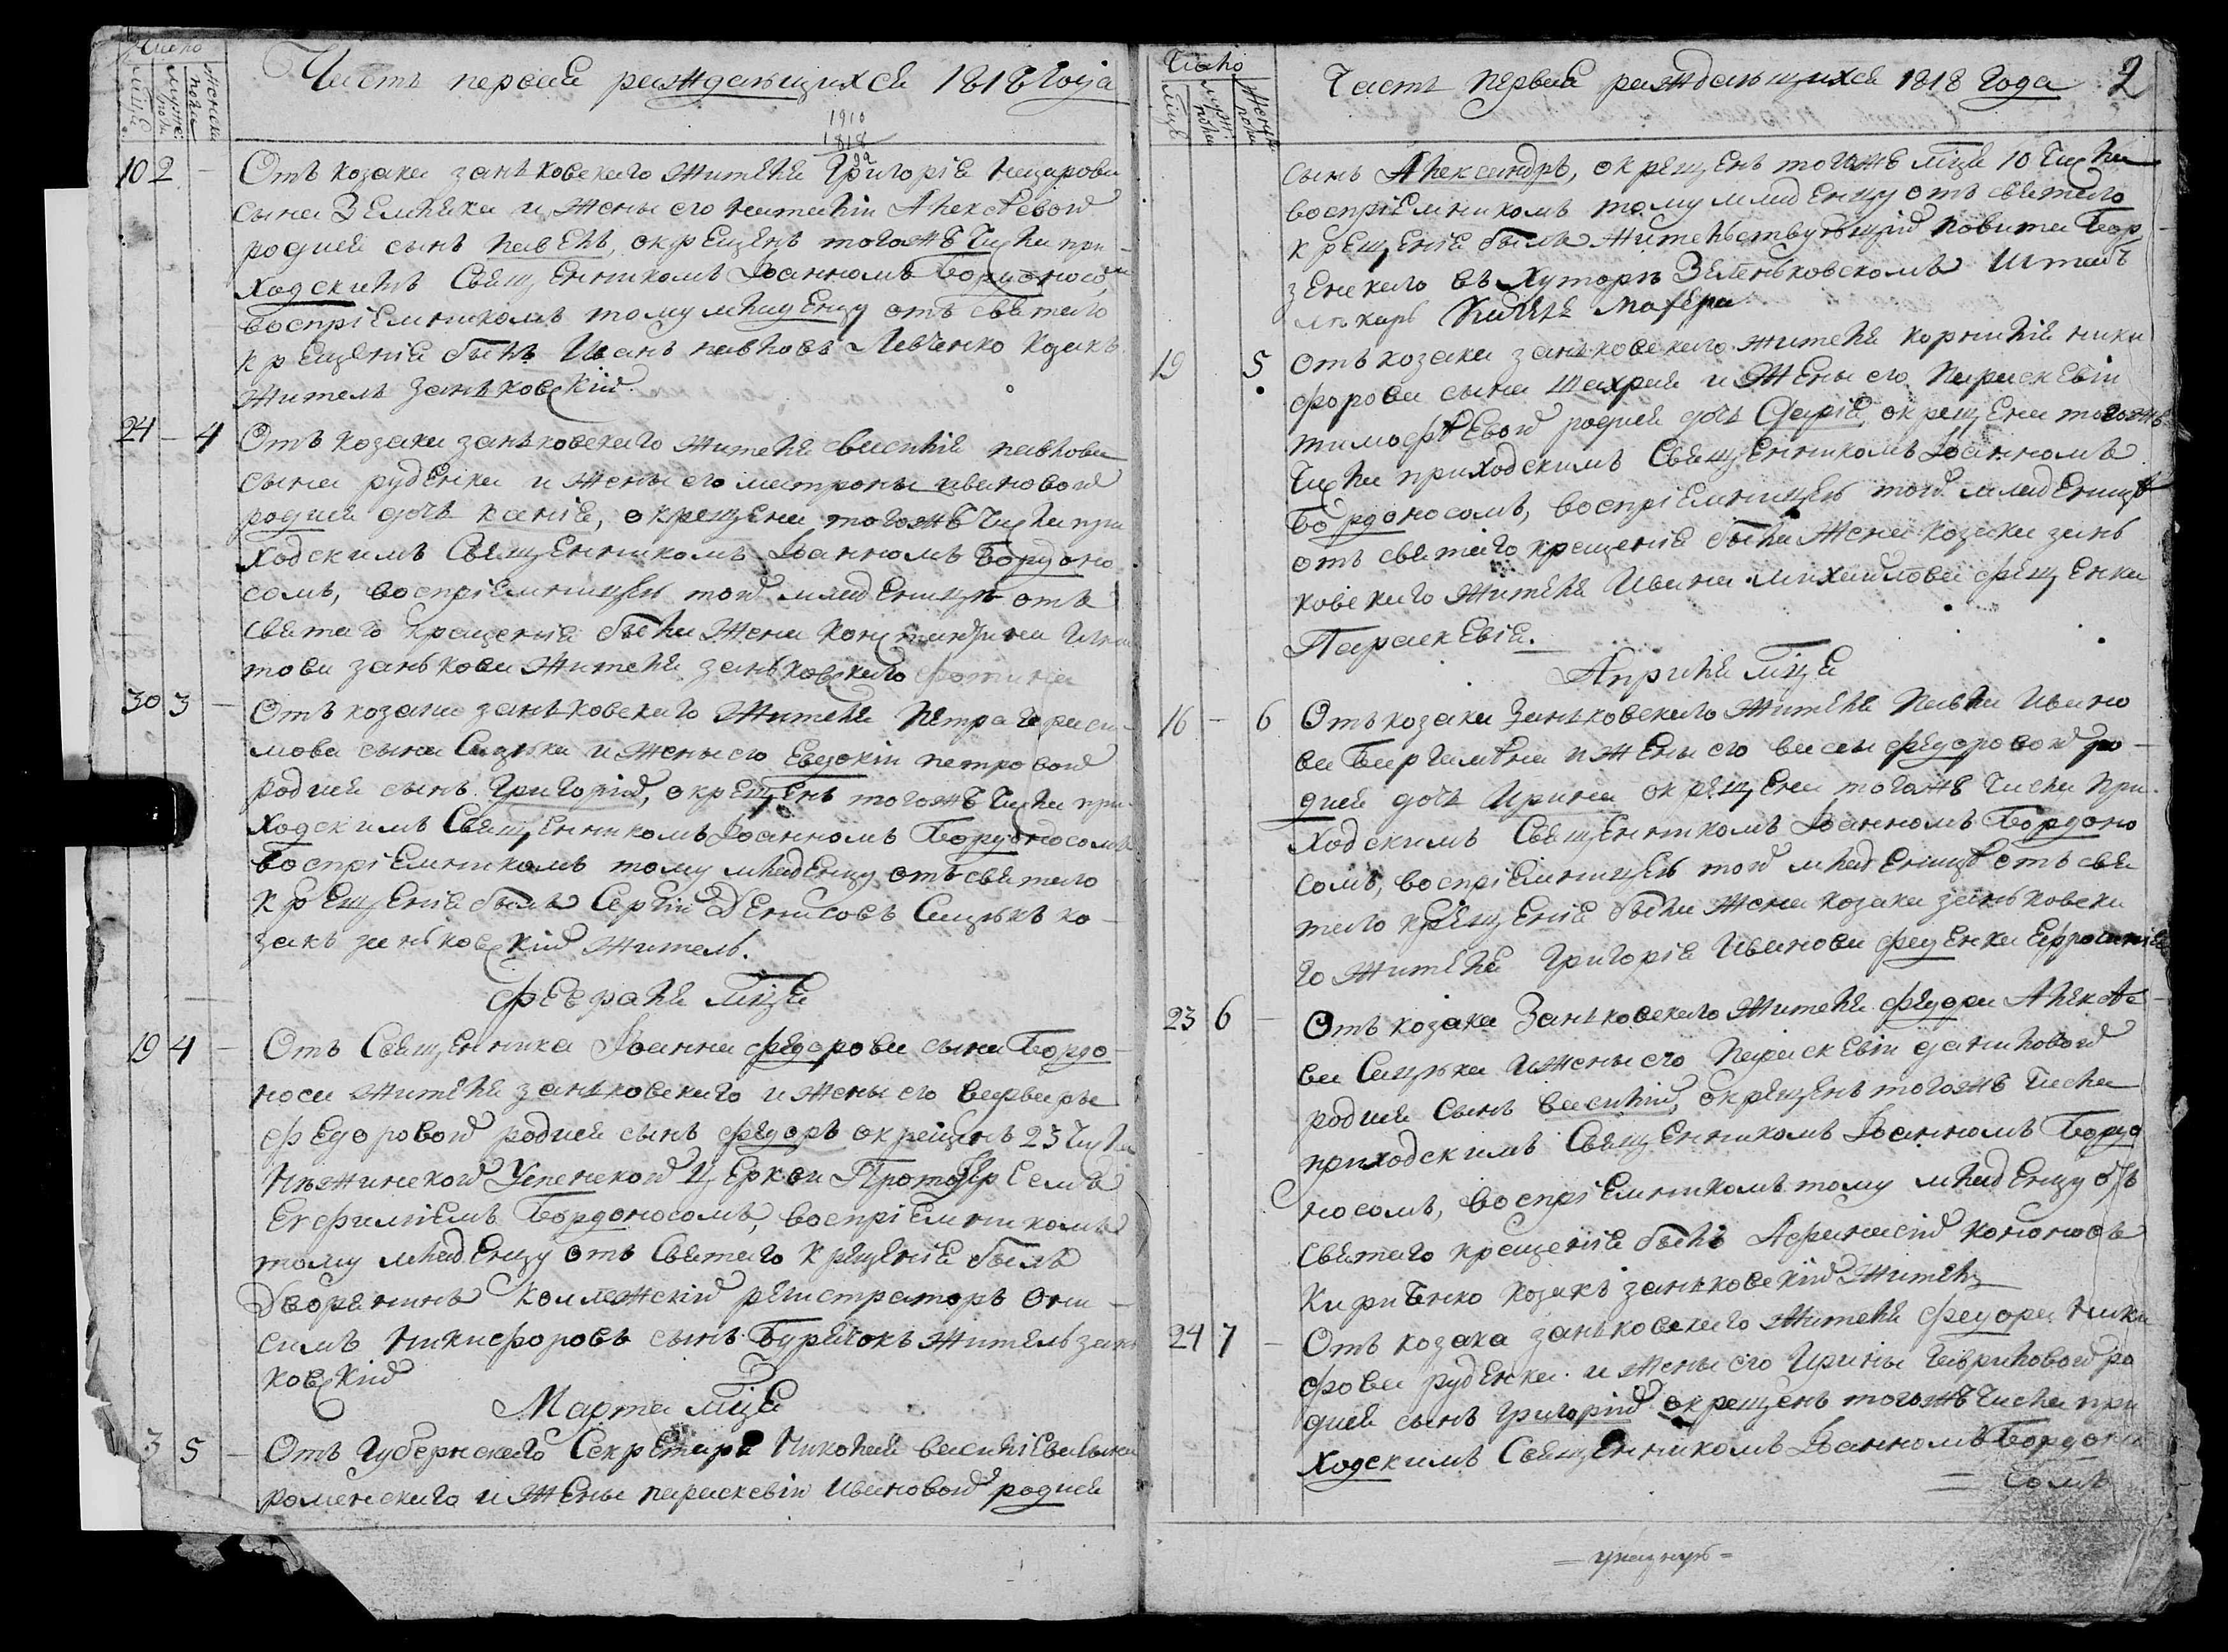 Число
мѣсяца
мужеска
пола
женска
пола
Часть первая раждающихся 1818 года
1910
1818
92
10 2 - Отъ козака заньковского жителя Григорія назарова
сына Земляка и жены его наталіи Алексѣевой
родися сынъ павелъ, окрещенъ тогожъ числа при-
ходскимъ Священникомъ Іоанномъ Бордоносомъ
воспріемникомъ тому младенцу отъ святаго
крещенія былъ Иванъ павловъ Левченко козакъ
житель заньковскій.
24 - 4 Отъ козака заньковскаго жителя василія павлова
сына руденка и жены его матроны ивановой
родися дочь ксенія, окрещена тогожъ числа при
ходскимъ Священникомъ Іоанномъ Бордоно
сомъ, воспріемницею той младеницѣ отъ
святаго крещенія была жена константина
това занькова жителя заньковскаго фотинія
30 3 - Отъ козака заньковскаго жителя Петра гараси-
мова сына Сацька и жены его Евдокіи петровой
родися сынъ Григорій, окрещенъ тогожъ числа при
ходскимъ Священникомъ Іоанномъ Бордоносомъ
воспріемникомъ тому младенцу отъ святаго
крещенія былъ Сергій Денисовъ Сацькъ ко-
закъ заньковскій житель.
Февраля мѣца
19 4 - Отъ Священника Іоанна федорова сына Бордо-
носа жителя заньковскаго и жены его варвары
федоровой родися сынъ федоръ окрещенъ 23 числа
Нѣжинской Успенской Церкви Протоіереемъ
Евфиміемъ Бордоносомъ, воспріемникомъ
тому младенцу отъ Святаго крещенія былъ
Дворянинъ коллежскій регистраторъ Они-
симъ Никифоровъ сынъ Бурячокъ житель зань
ковскій
Марта мѣца
3 5 - Отъ Губернскаго Секретаря Николая василіева сына
роменскаго и жены параскевіи ивановой родися
Число
мѣца
муж.
пола
женск
пола
Часть первая раждающихся 1818 года 2
сынъ Александръ, окрещенъ тогожъ мѣца 10 числа
воспріемникомъ тому младенцу отъ святаго
крещенія былъ жительствующій повѣта Бор
зенскаго въ хуторѣ Зеленьковскомъ Штабъ
лѣкарь
19 5 Отъ козака заньковскаго жителя корнилія ники
форова сына шахрая и жены его параскевіи
тимофѣевой родися дочь Дарія, окрещена тогожъ
числа приходскимъ Священникомъ Іоанномъ
Бордоносомъ, воспріемницею той младеницѣ
отъ святаго крещенія была жена козака зань
ковскаго жителя Ивана михайлова фещенка
Параскевія.
Априля мѣца
16 - 6 Отъ козака Заньковскаго жителя Павла Ивано
ва и жены его васы федоровой ро-
дися дочь Ирина окрещена тогожъ числа при-
ходскимъ Священникомъ Іоанномъ Бордоно
сомъ, воспріемницею той младеницѣ отъ свя
таго крещенія была жена козака заньковска
го жителя Григорія Иванова феденка Ефросинія
23 6 - Отъ козака Заньковскаго жителя федора Алексѣе-
ва Сацька и жены его параскевіи даниловой
родися сынъ василій, окрещенъ тогожъ числа
приходскимъ Священникомъ Іоанномъ Бордо
носомъ, воспріемникомъ тому младенцу отъ
святаго крещенія былъ Афанасій кононовъ
козакъ заньковскій житель
24 7 - Отъ козака заньковскаго жителя федора Ники
фова руденка и жены его Ирины гавриловой ро
дися сынъ Григорій окрещенъ тогожъ числа при
ходскимъ Священникомъ Іоанномъ Бордоно
= сомъ